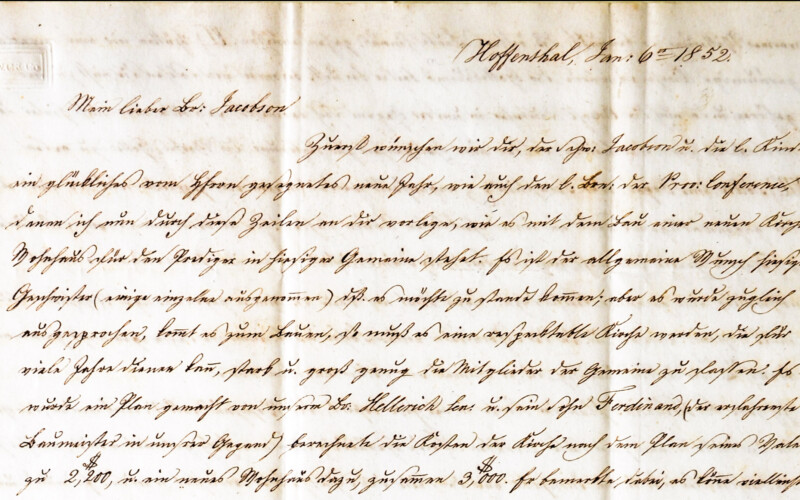 Hoffenthal, Jan: 6ᵗᵉ 1852.
Mein lieber Br: Jacobson
Zuerst wünschen wir dir, der Schw: Jacobson u. die l. Kind
ein glückliches vom HErrn gesegnetes neue Jahr, wie auch den l. Brn: der Prov: Conference,
denen ich nun durch diese Zeilen an dir vorlege, wie es mit dem Bau einer neuen Kirche
Wohnhaus für den Prediger in hiesiger Gemeine stehet. Es ist der allgemeine Wunsch hiesig
Geschwister (einige einzelne ausgenommen) daß es möchte zu stande kommen; aber es wurde zugleich
ausgesprochen, kommt es zum Bauen, so muß es eine respektable Kirche werden, die für
viele Jahre dienen kann, stark u. groß genug die Mitglieder der Gemeine zu fassen. Es
wurde ein Plan gemacht von unserm Br. Hellerich sen. u. sein Sohn Ferdinand, (der erfahrenste
Baumeister in unsrer Gegend) berechnete die Kosten der Kirche nach dem Plan seines Vaters
zu 2,$200, u. ein neues Wohnhaus dazu, zusammen 3,$000. Er bemerkte dabei, es könne vielleicht